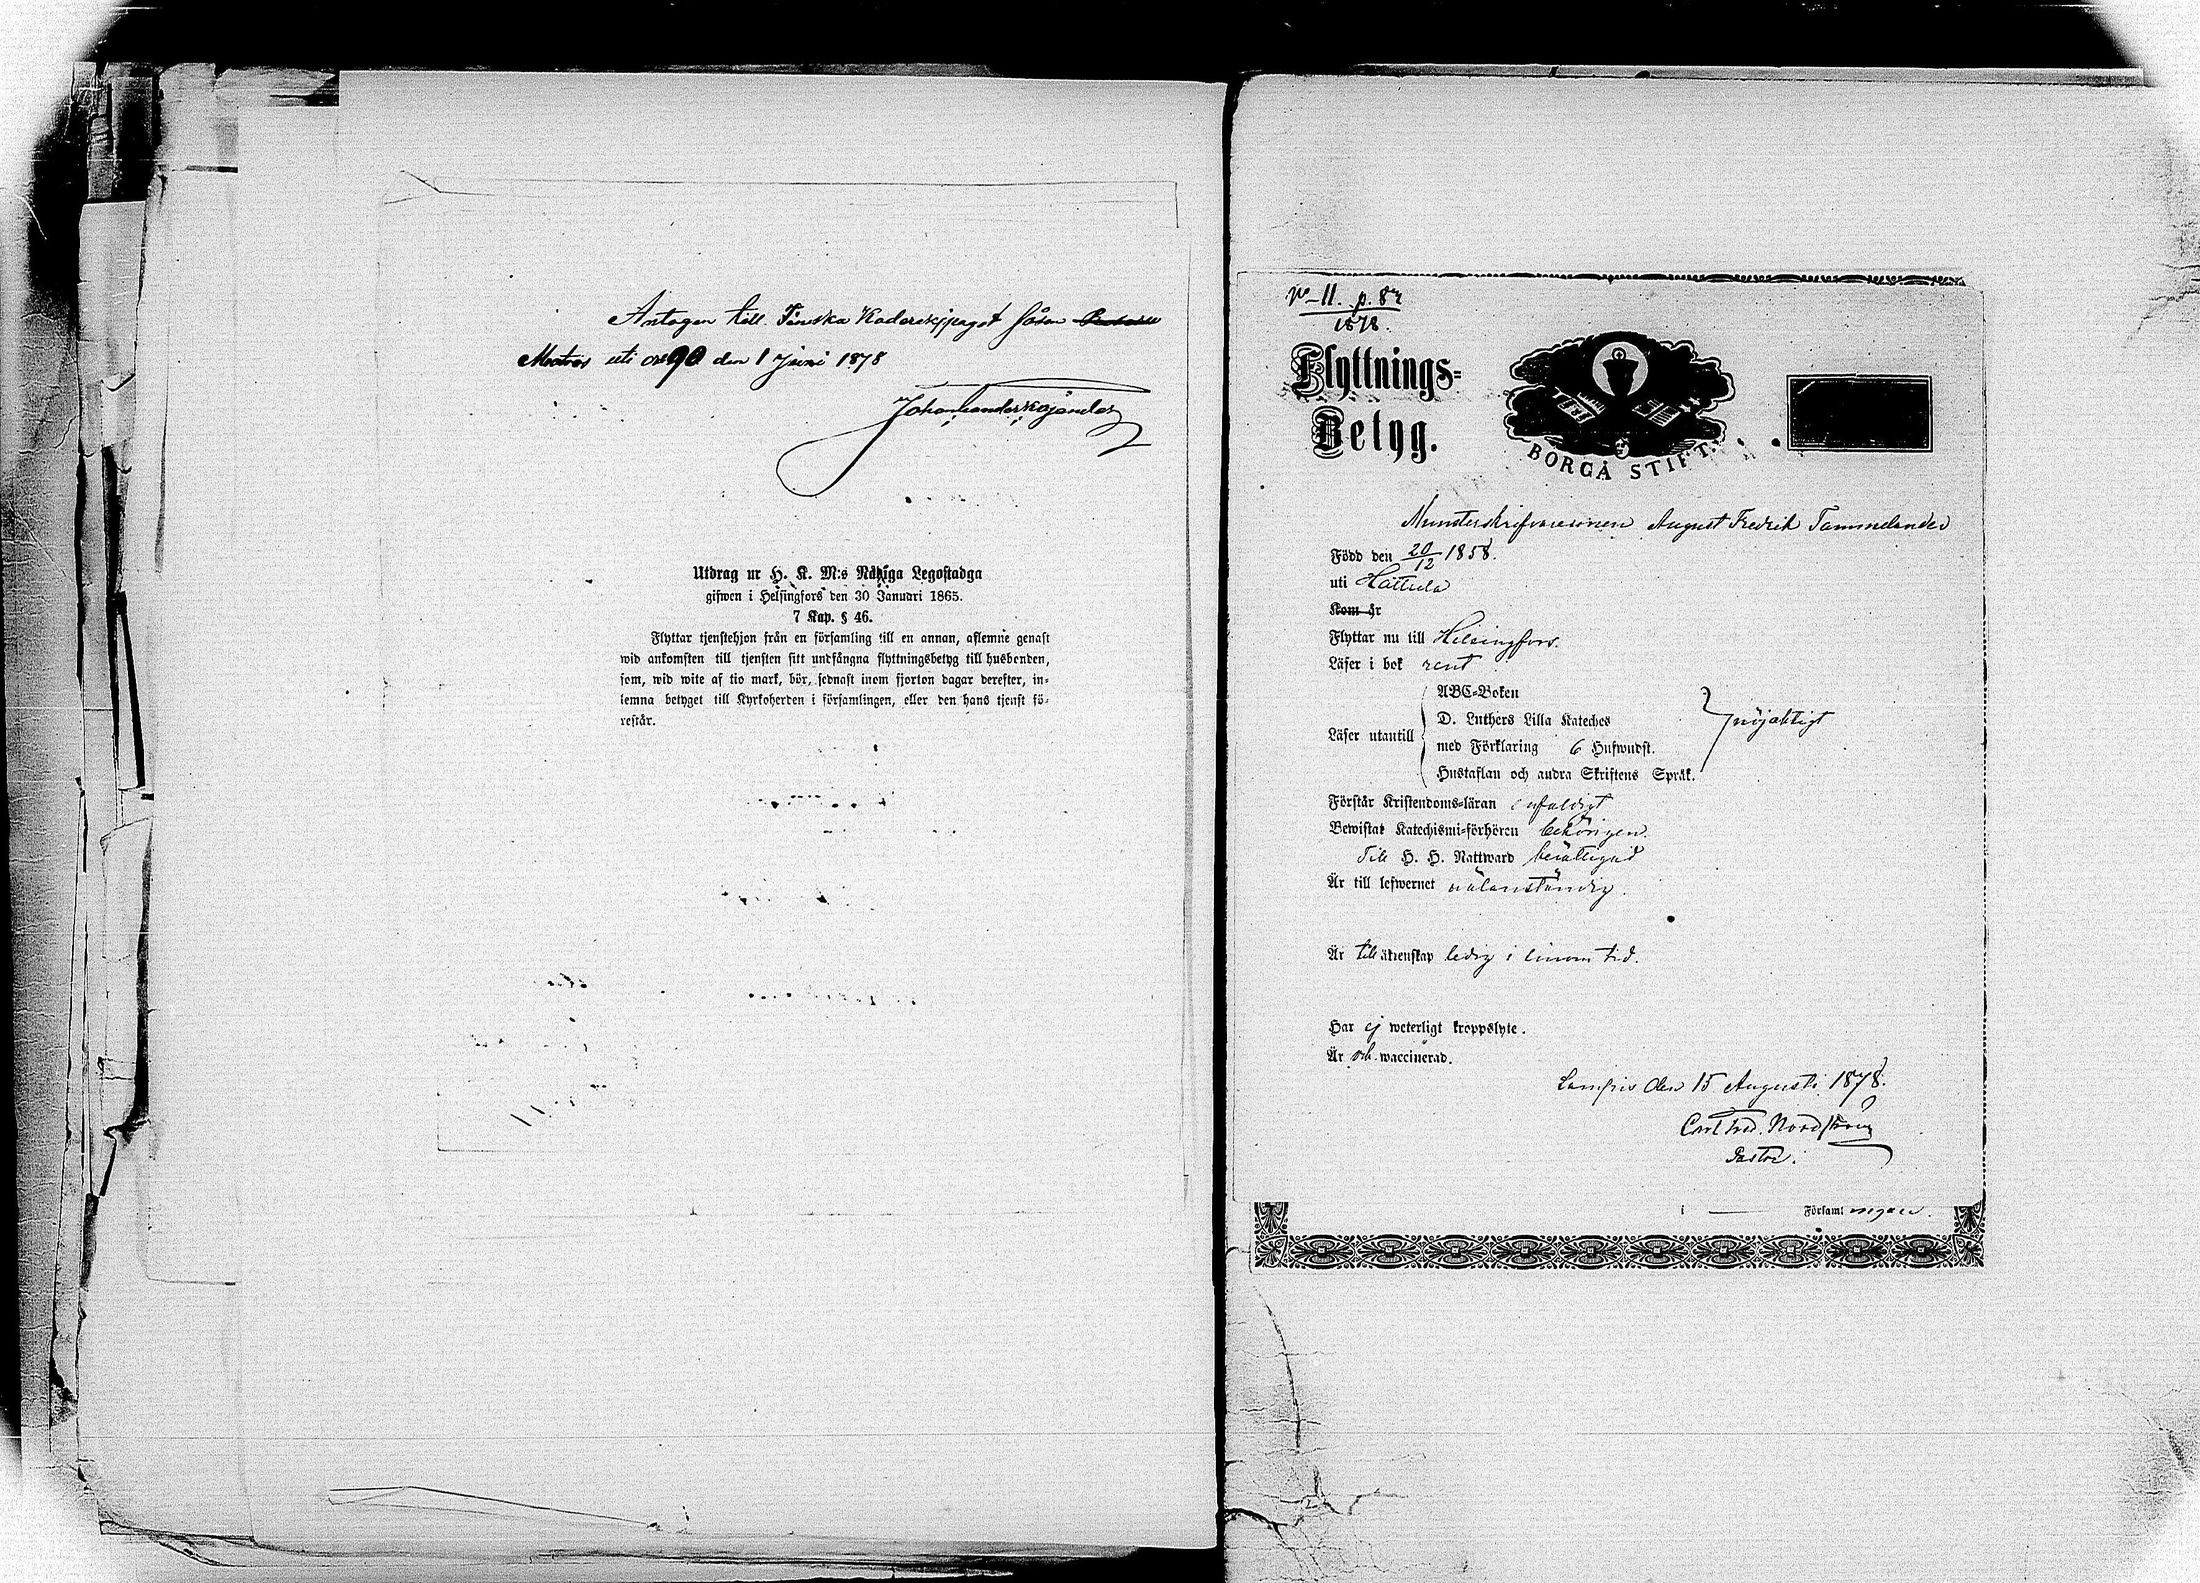 Antagen till Finska Kaderekipaget såsom
Matros uti No 90 den 1 Juni 1878
Utdrag ur H. K. M:s Nådiga Legostadga
gifwen i Helsingfors den 30 Januari 1865.
7 Kap. § 46.
Flyttar tjenstehjon från en församling till en annan, aflemne genast
wid ankomsten till tjensten sitt undfångna flyttningsbetyg till husbonden,
som, wid wite af tio mark, bör, sednast inom fjorton dagar derefter, in-
lemna betyget till Kyrkoherden i församlingen, eller den hans tjenst fö-
restår.
No 11. p. 87
1878.
Flyttnings-
Betyg.
BORGÅ STIFT.
August Fredrik Tammelander
Född den 20/12 1858.
uti Hattula
Kom år
Flyttar nu till Helsingfors.
Läser i bok rent
ABC-Boken
D. Luthers Lilla Kateches
Läser utantill
med Förklaring 6 Hufwudst.
Hustaflan och andra Skriftens Språk.
nöjaktigt
Förstår Kristendoms-läran enfaldigt
Bewistat Katechismi-förhören behörigen.
Till H. H. Nattward berättigad
Är till lefwernet wälanständig.
Är till äktenskap ledig i sinom tid.
Har ej weterligt kroppslyte.
Är och waccinerad.
Lampis den 15 Augusti 1878.
Carl Fred. Nordström
Pastor.
i Församlingen.